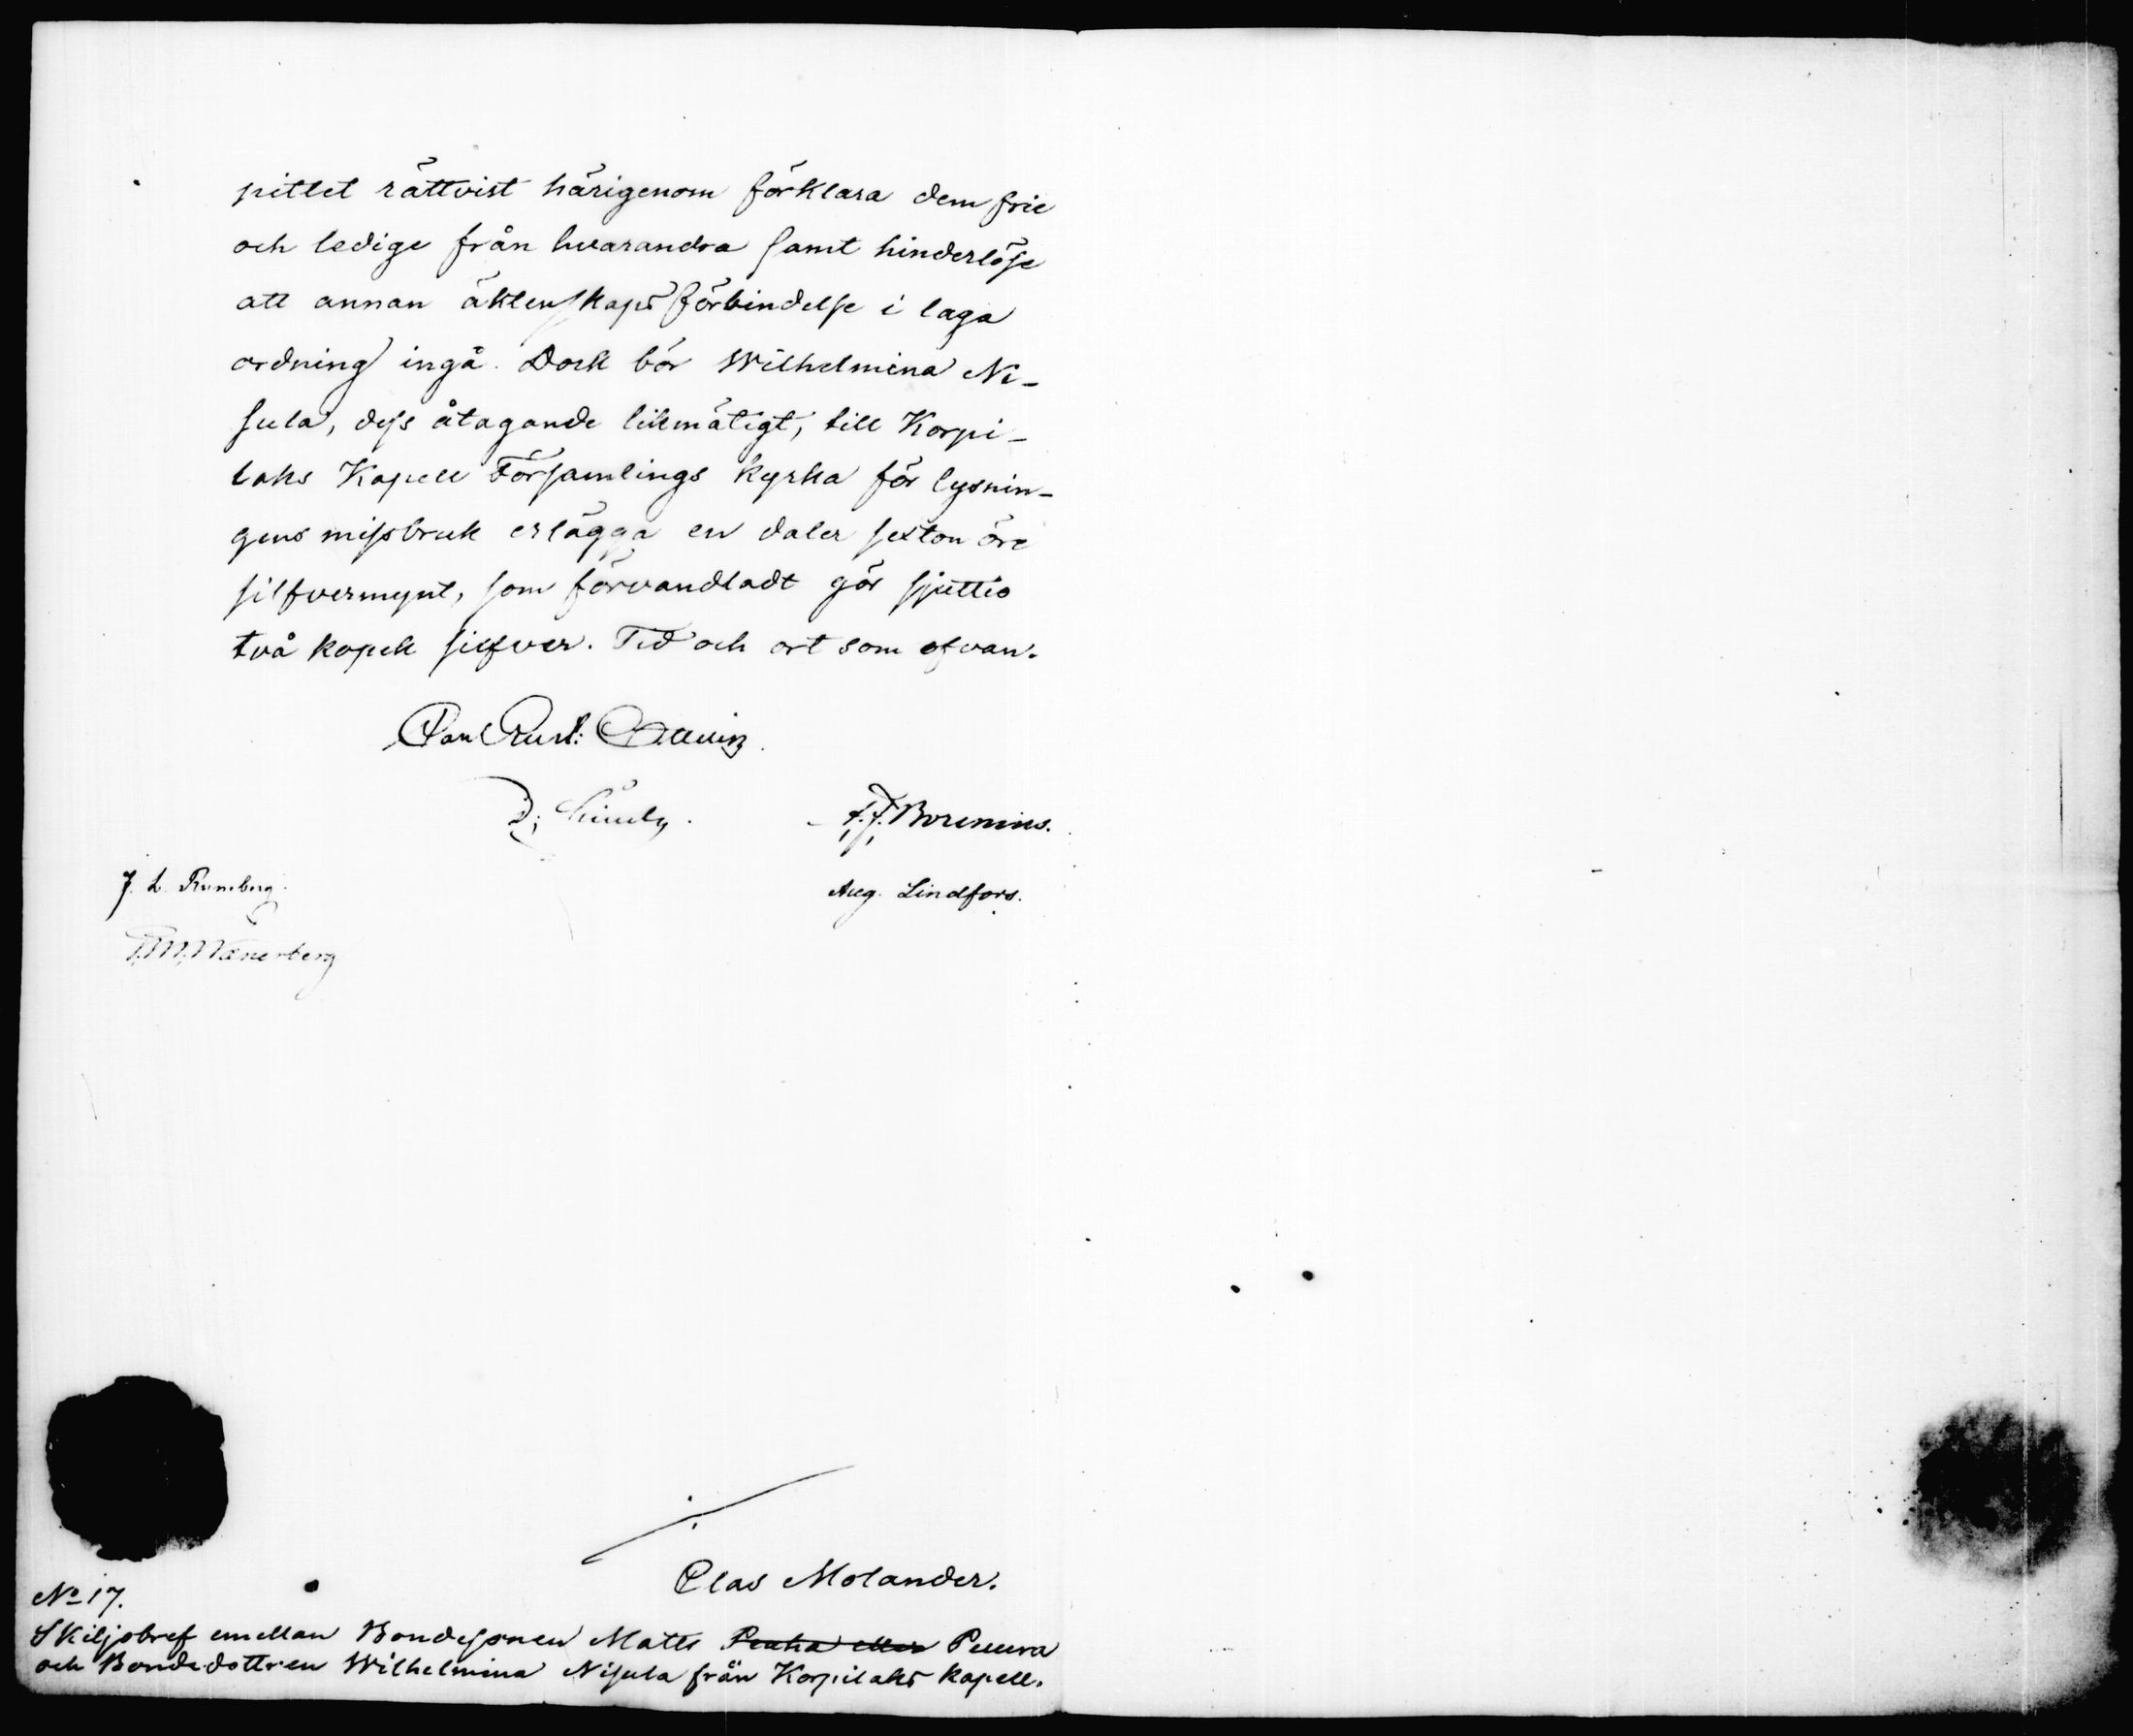 pittlet rättvist härigenom förklara dem frie
och ledige från hvarandra samt hinderlöse
att annan äktenskapsförbindelse i laga
ordning ingå. Dock bör Wilhelmina Ni-
sula, dess åtagande likmätigt, till Korpi-
laks Kapell Församlings kyrka för lysnin-
gens missbruk erlägga en daler sexton öre
silfvermynt, som förvandladt gör sjuttio
två kopek silfver. Tid och ort som ofvan.
D:
F. J. Borenius.
J. L. Runeberg.
Aug. Lindfors.
Wænerberg
Clas Molander.
No 17.
Skiljobref emellan Bondesonen Matts Peuha eller Peura
och Bondedottren Wilhelmina Nisula från Korpilaks kapell.